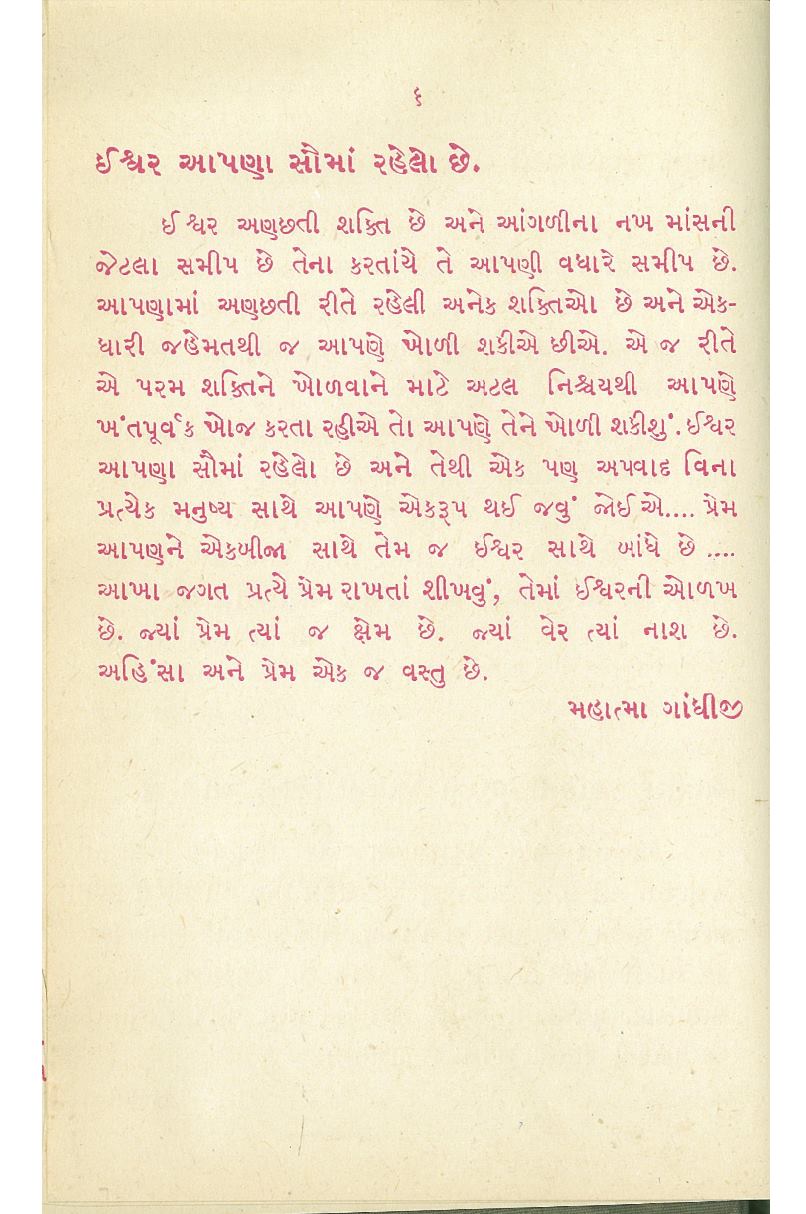 ૬
ઈશ્વર આપણા સૌમાં રહેલો છે.
ઈશ્વર અણછતી શક્તિ છે અને આંગળીના નખ માંસની
જેટલા સમીપ છે તેના કરતાંયે તે આપણી વધારે સમીપ છે.
આપણામાં અણછતી રીતે રહેલી અનેક શક્તિઓ છે અને એક-
ધારી જહેમતથી જ આપણે ખોળી શકીએ છીએ. એ જ રીતે
એ પરમ શક્તિને ખોળવાને માટે અટલ નિશ્ચયથી આપણે
ખંતપૂર્વક ખોજ કરતા રહીએ તો આપણે તેને ખોળી શકીશું. ઈશ્વર
આપણા સૌમાં રહેલો છે અને તેથી એક પણ અપવાદ વિના
પ્રત્યેક મનુષ્ય સાથે આપણે એકરૂપ થઈ જવું જોઈએ.... પ્રેમ
આપણને એકબીજા સાથે તેમ જ ઈશ્વર સાથે બાંધે છે ....
આખા જગત પ્રત્યે પ્રેમ રાખતાં શીખવું, તેમાં ઈશ્વરની ઓળખ
છે. જ્યાં પ્રેમ ત્યાં જ ક્ષેમ છે. જ્યાં વેર ત્યાં નાશ છે.
અહિંસા અને પ્રેમ એક જ વસ્તુ છે.
મહાત્મા ગાંધીજી